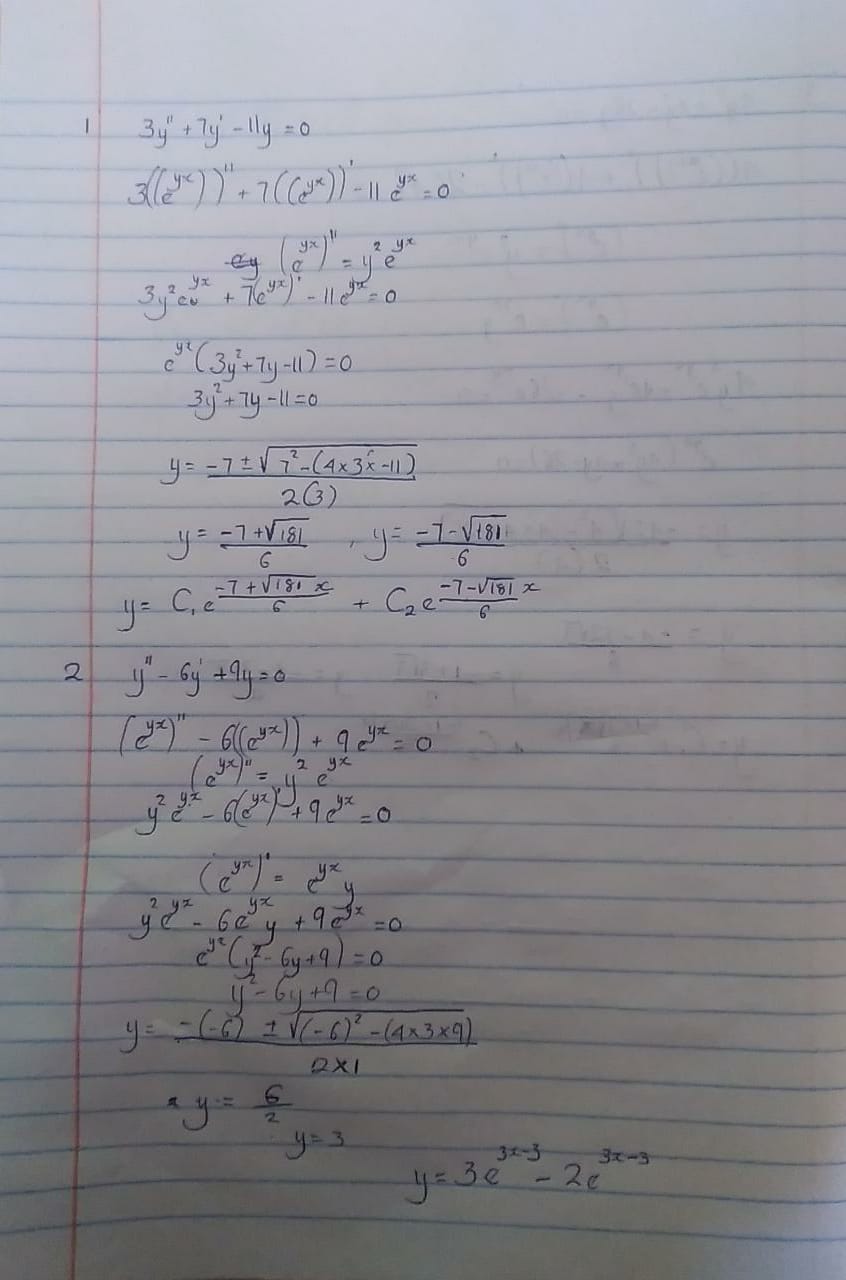 1 3y'' + 7y' - 11y = 0
3((e^{yx}))'' + 7((e^{yx}))' - 11e^{yx} = 0
(e^{yx})'' = y^2 e^{yx}
3y^2 e^{yx} + 7(e^{yx})' - 11e^{yx} = 0
e^{yx}(3y^2 + 7y - 11) = 0
3y^2 + 7y - 11 = 0
y = \frac{-7 ± √(7^2 - (4×3×-11))}{2(3)}
y = \frac{-7+√181}{6} , y = \frac{-7-√181}{6}
y = C_1 e^{\frac{-7+√181}{6} x} + C_2 e^{\frac{-7-√181}{6} x}
2 y'' - 6y' + 9y = 0
(e^{yx})'' - 6((e^{yx})) + 9e^{yx} = 0
(e^{yx})'' = y^2 e^{yx}
y^2 e^{yx} - 6(e^{yx})' + 9e^{yx} = 0
(e^{yx})' = e^{yx} y
y^2 e^{yx} - 6e^{yx} y + 9e^{yx} = 0
e^{yx}(y^2 - 6y + 9) = 0
y^2 - 6y + 9 = 0
y = \frac{-(-6) ± √((-6)^2 - (4×3×9))}{2×1}
y = \frac{6}{2}
y = 3
y = 3e^{3x-3} - 2e^{3x-3}